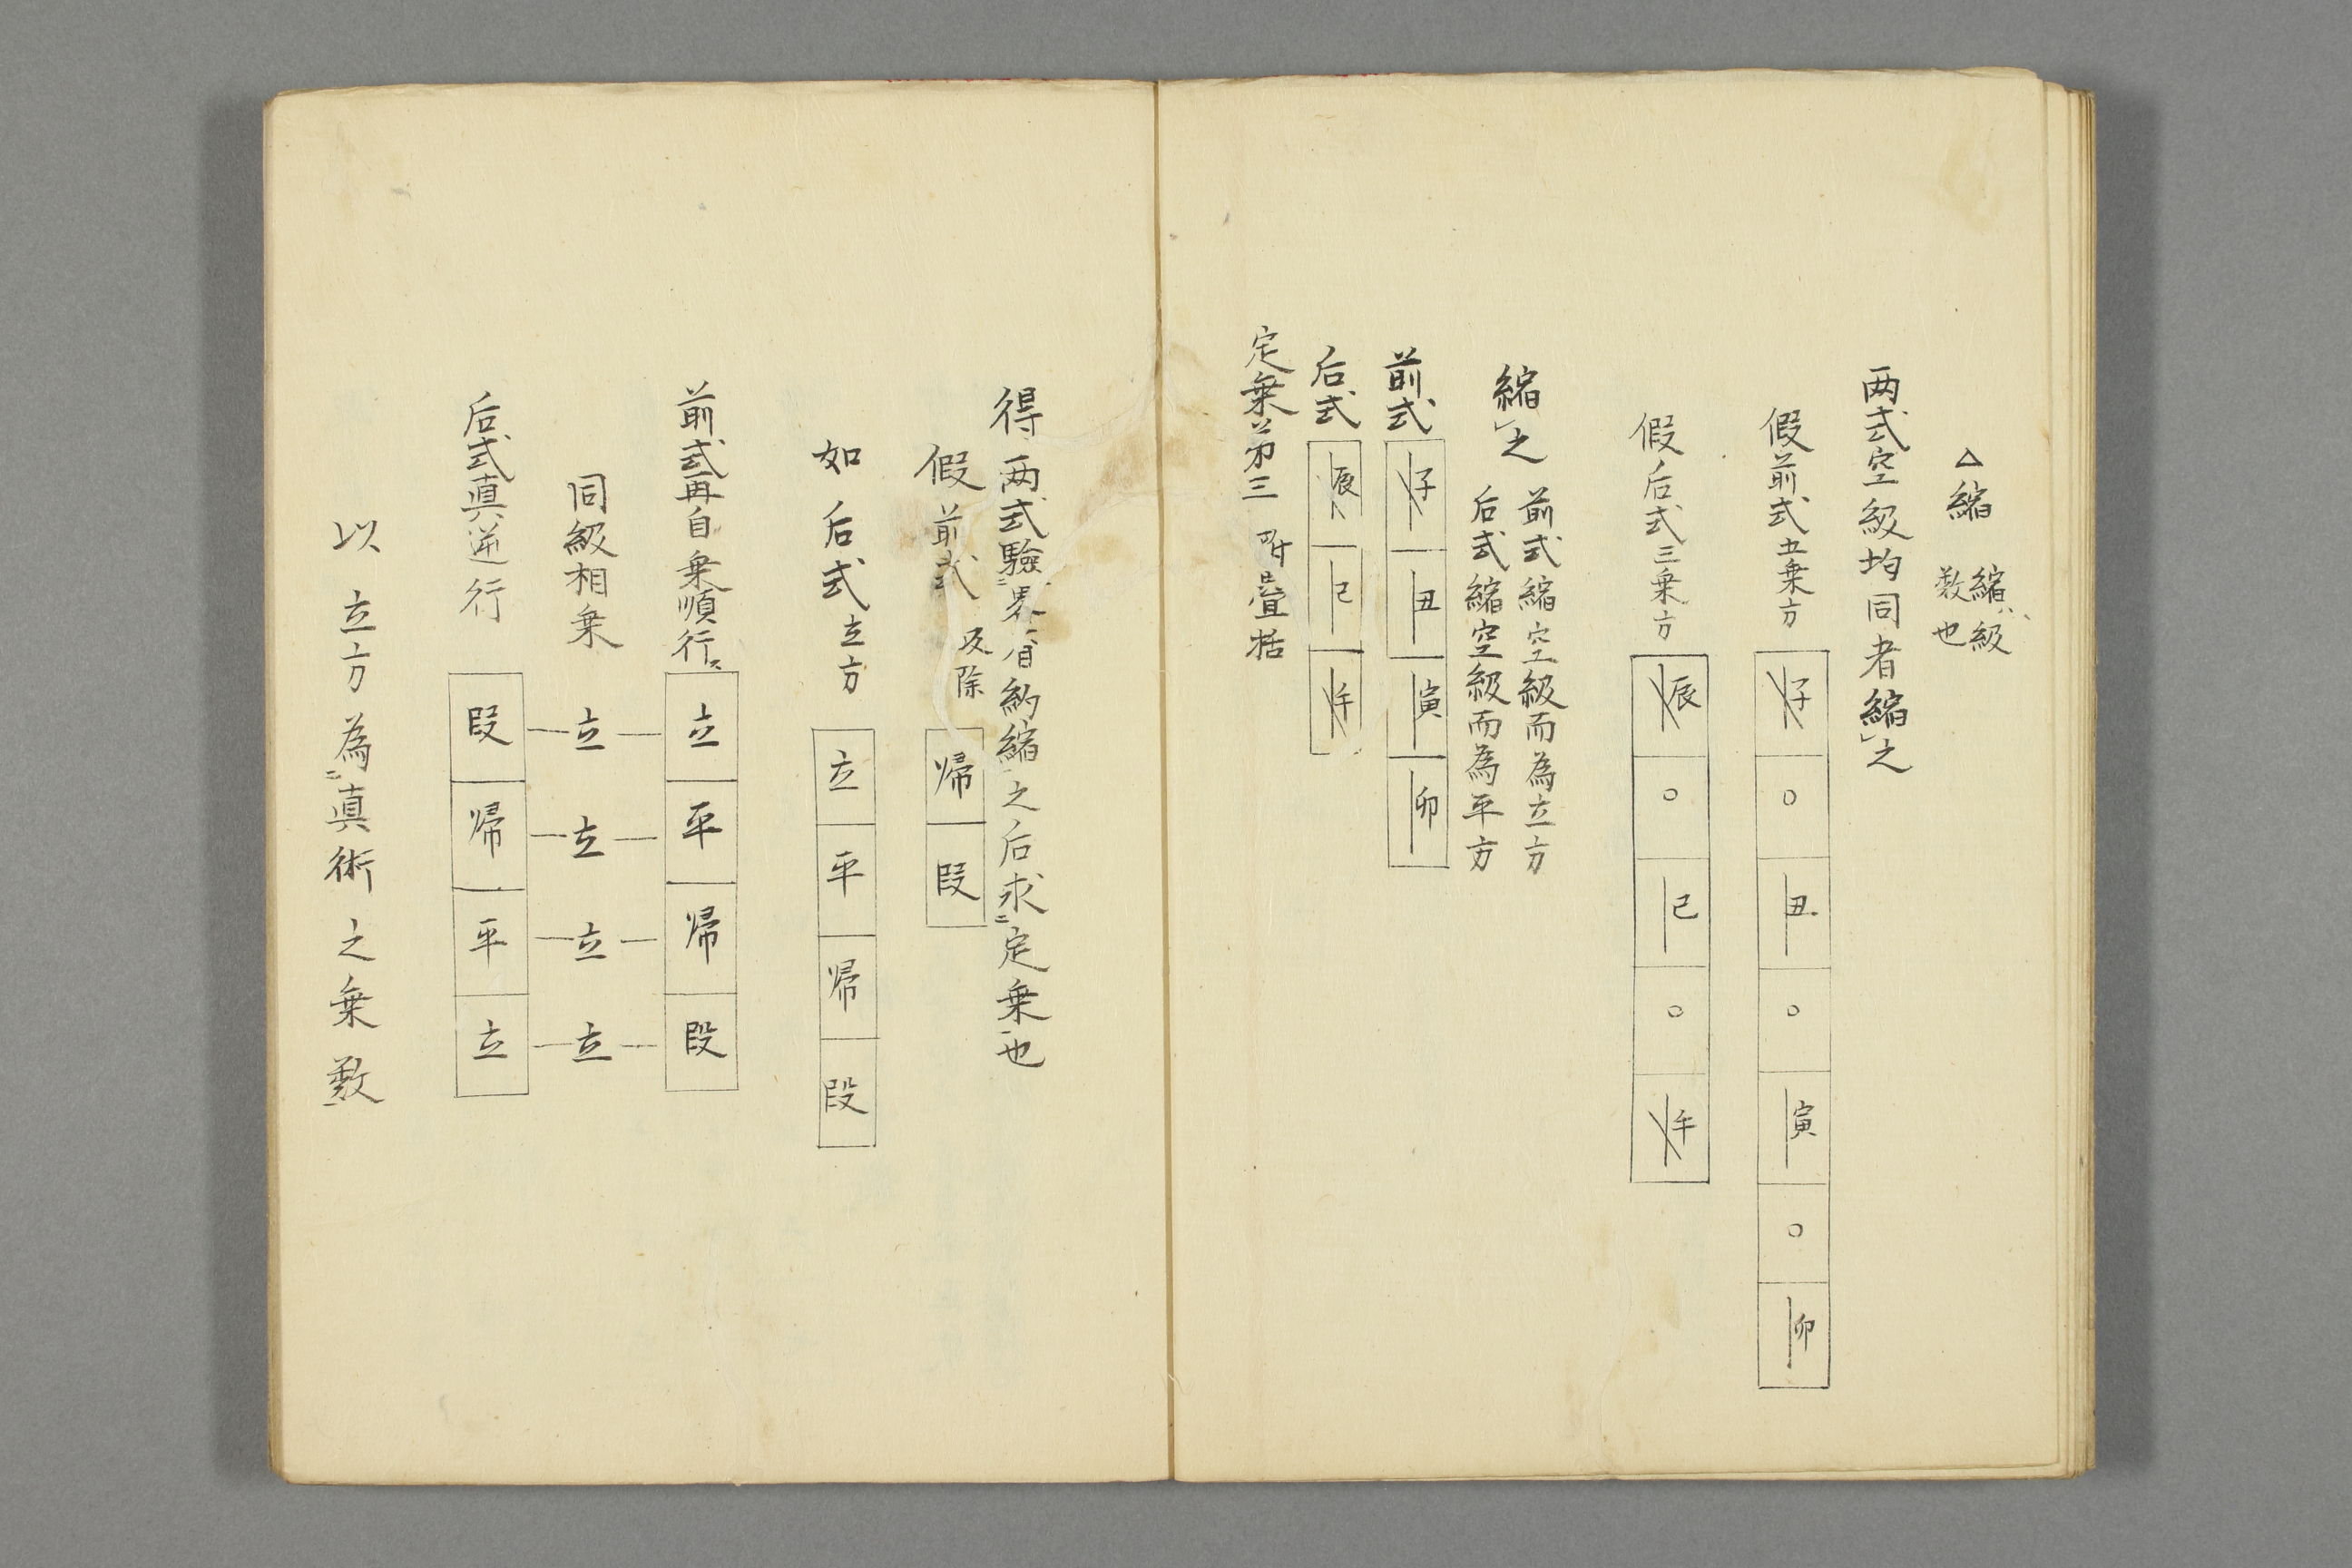 △縮
縮ハ級
数也
两式空級均同者縮レ之
假前式五乗方
子
○
丑
○
寅
○
卯
假后式三乗方
辰
○
巳
○
午
縮レ之
前式縮空級而為立方
后式縮空級而為平方
前式
子
丑
寅
卯
后式
辰
巳
午
定乗第三 附畳括
得两式驗二畧一省約縮一之后求二定乗一也
假前式
及除
帰
段
如后式立方
立
平
帰
段
前式再自乗順行ス
立
平
帰
段
同級相乗
立
立
立
立
后式真逆行
段
帰
平
立
以立方為二真術之乗数一